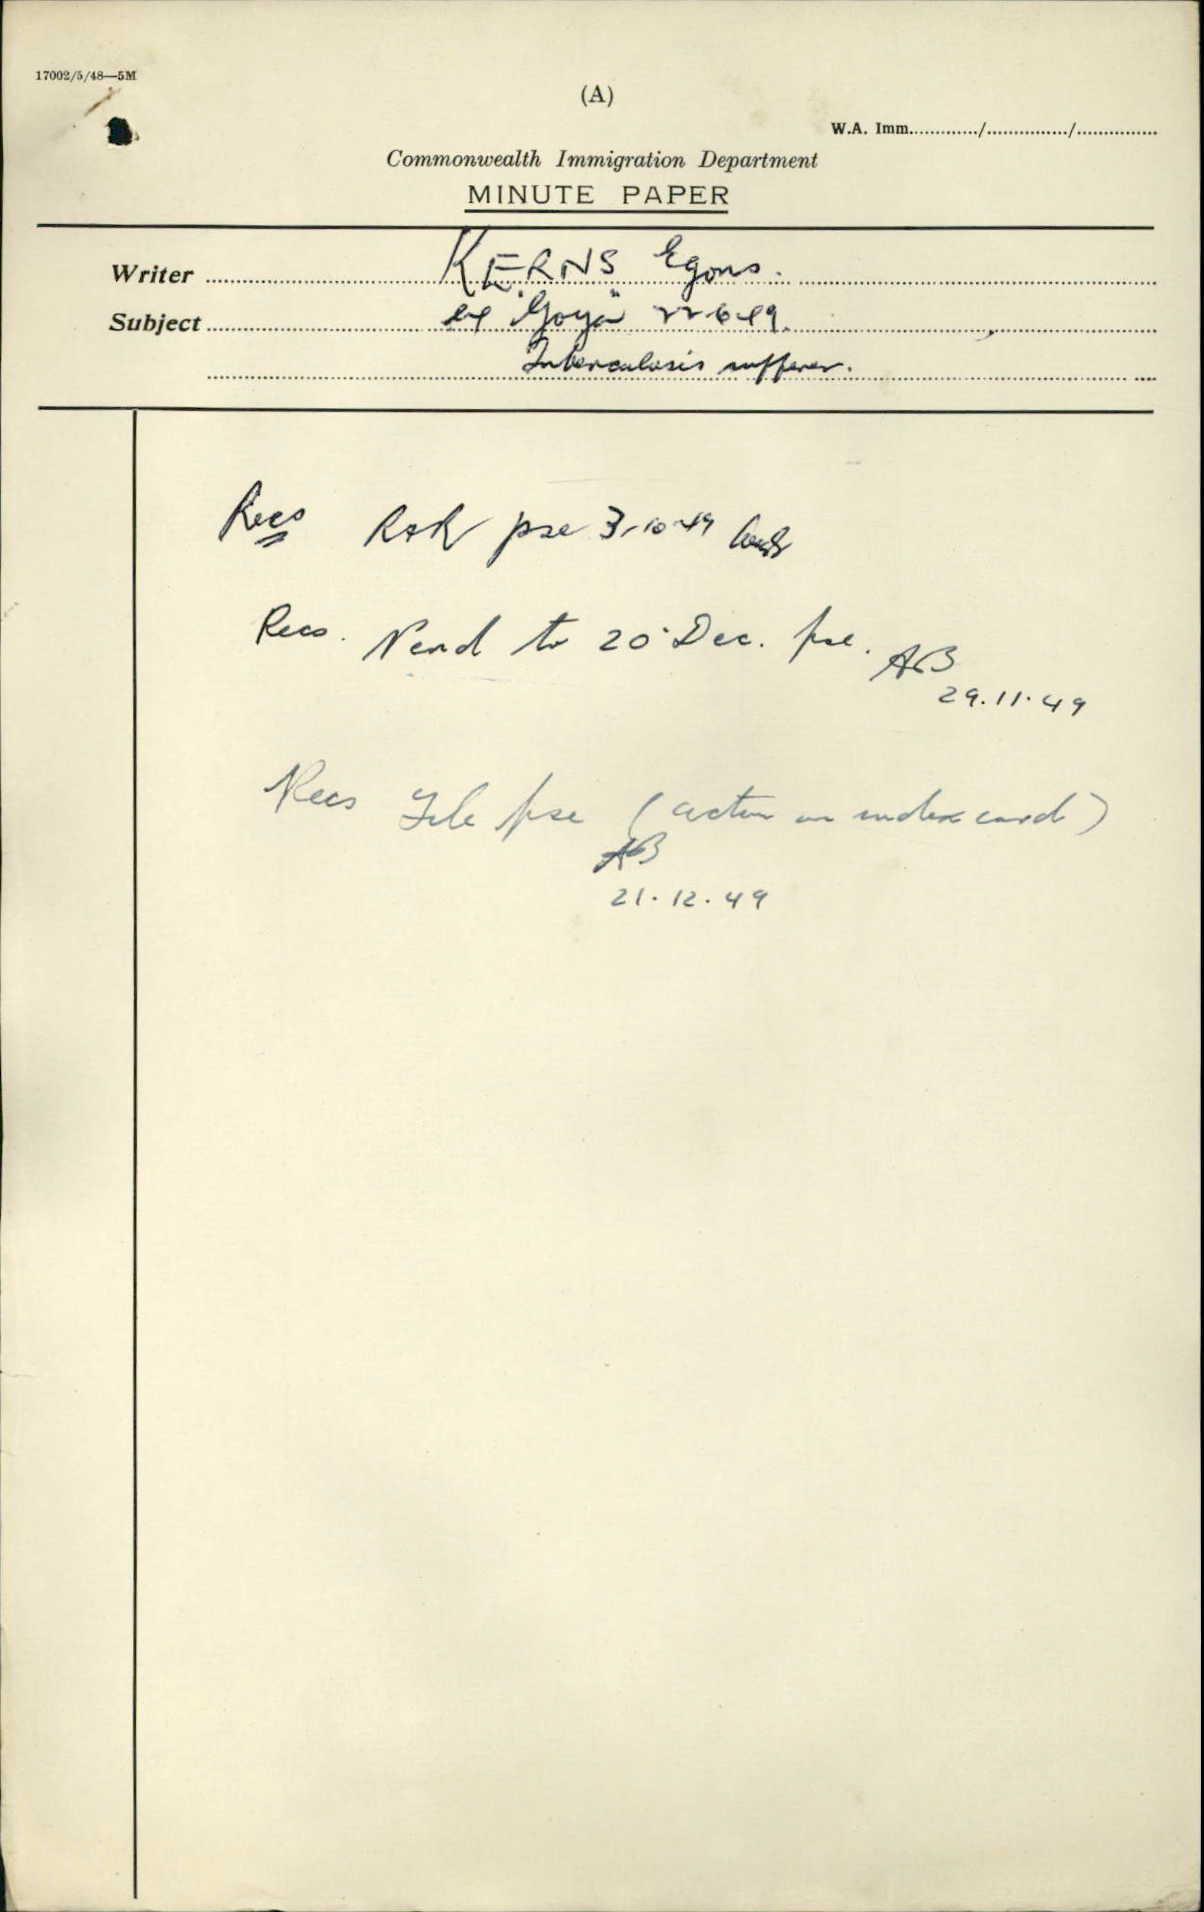 17002/5/48—5M
(A)
W.A. Imm............./................/................
Commonwealth Immigration Department
MINUTE PAPER
Writer KERNS Egons.
Subject ex "Goya" 22-6-49.
Tuberculosis sufferer.
Recs pse 3-10-49
Recs. to 20 Dec. pse. AB
29.11.49
Recs File pse (action on index card)
AB
21.12.49